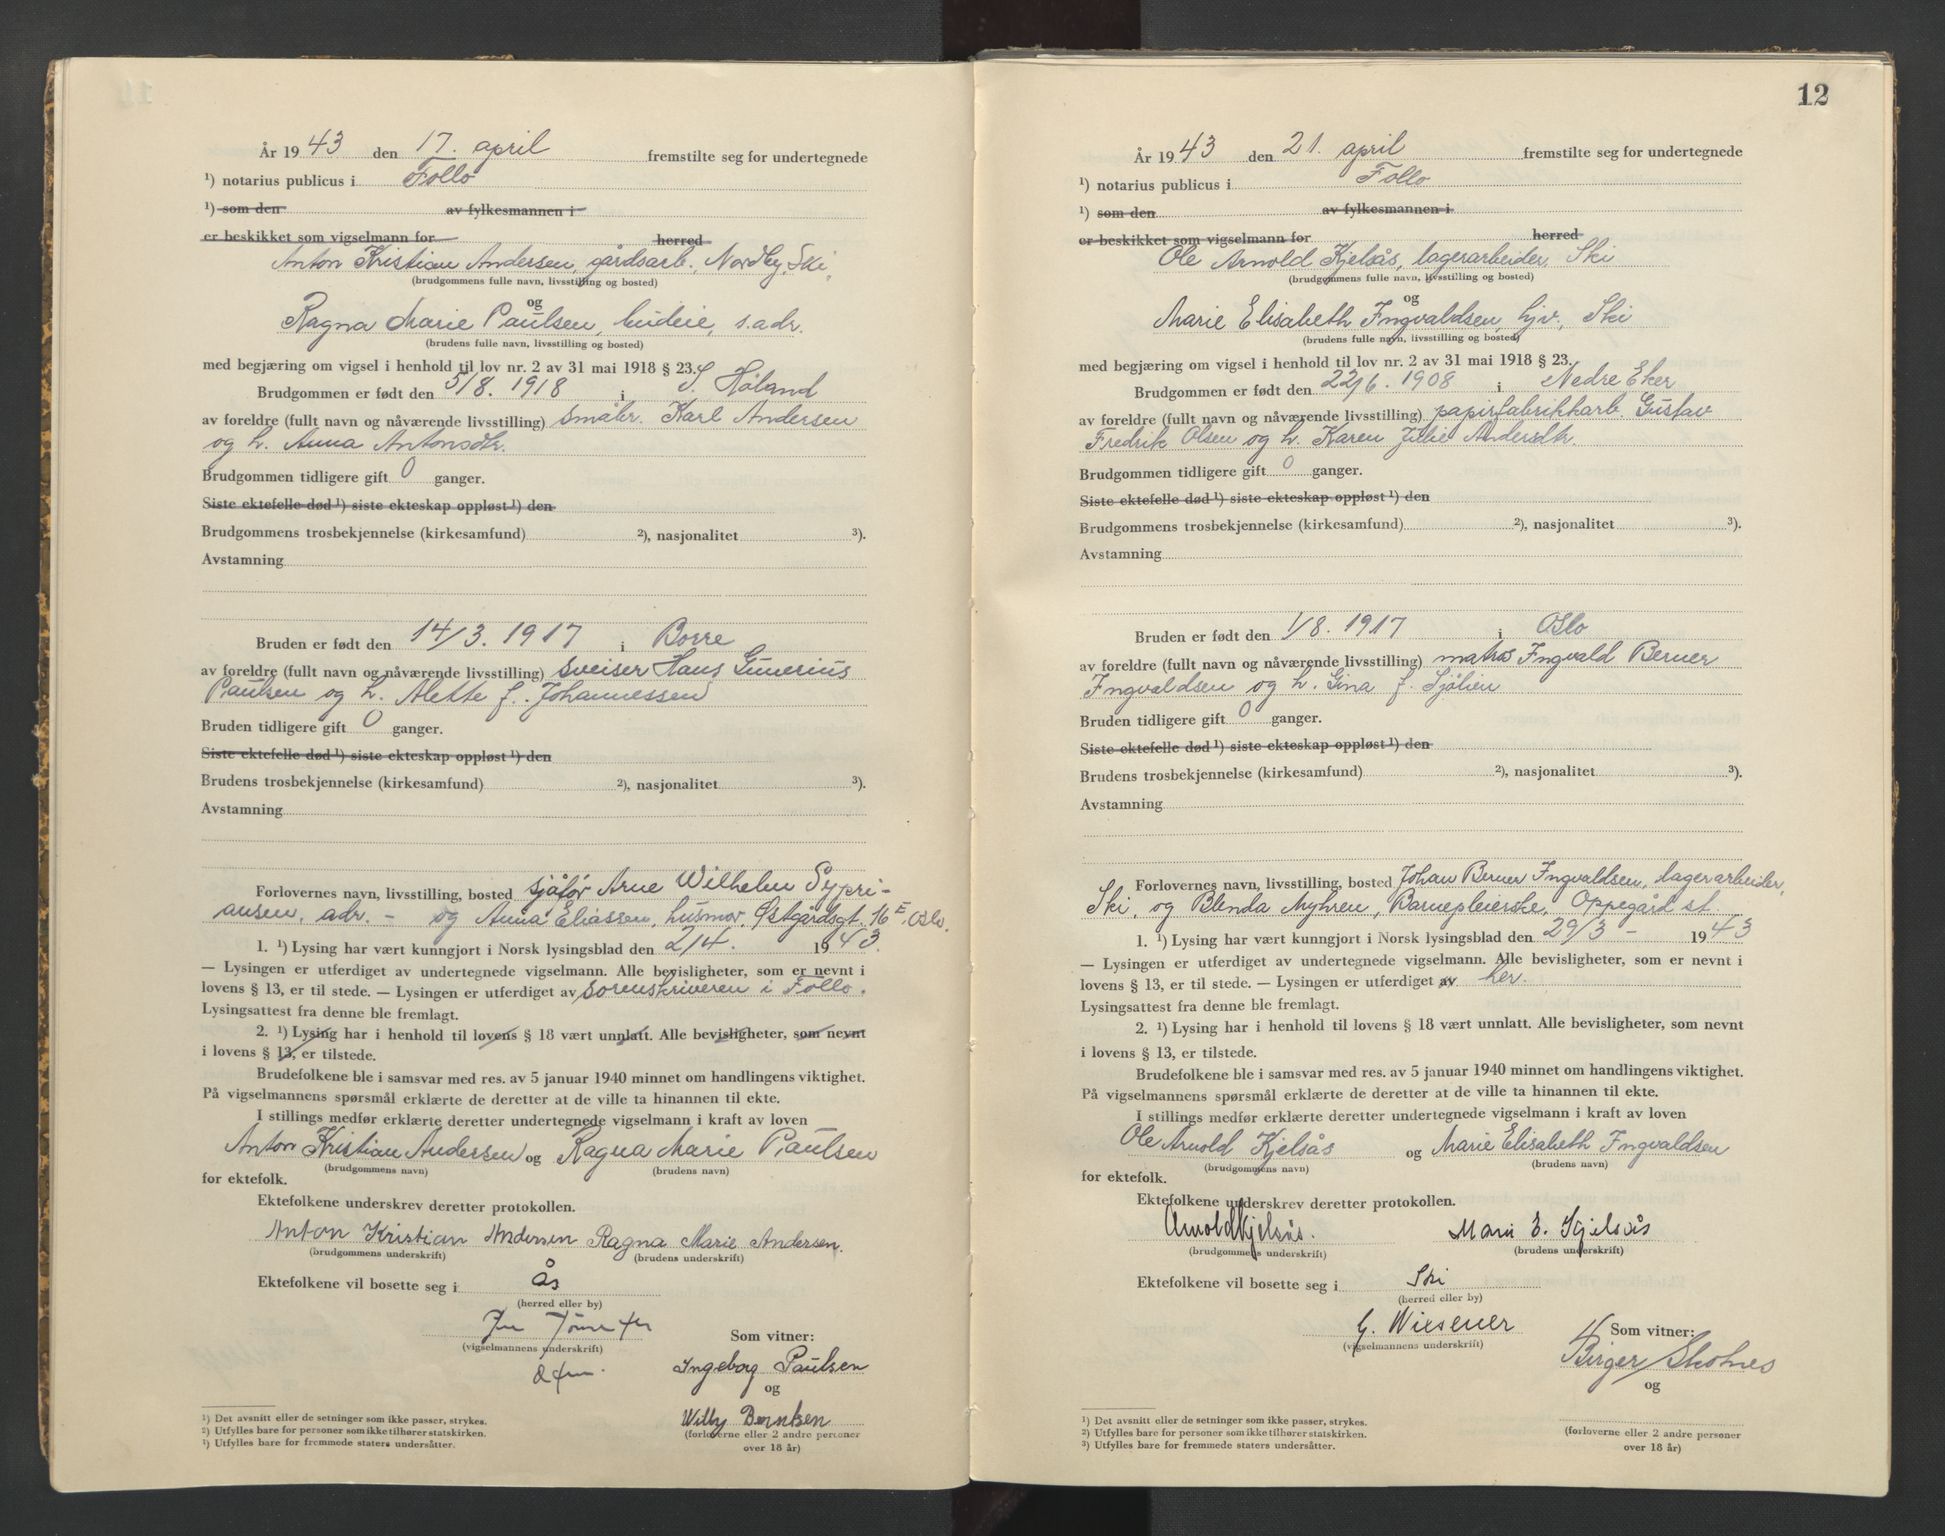 År 1943 den 17. april fremstilte seg for undertegnede
¹) notarius publicus i Follo
¹) som den av fylkesmannen i
er beskikket som vigselmann for herred
Anton Kristian Andersen, gårdsarb., Nordby, Ski,
(brudgommens fulle navn, livsstilling og bosted)
og
Ragna Marie Paulsen, budeie, s.adr.
(brudens fulle navn, livsstilling og bosted)
med begjæring om vigsel i henhold til lov nr. 2 av 31 mai 1918 § 23.
Brudgommen er født den 5/8. 1918 i S. Høland
av foreldre (fullt navn og nåværende livsstilling) småbr. Karl Andersen
og h. Anna Antonsdtr.
Brudgommen tidligere gift 0 ganger.
Siste ektefelle død ¹) siste ekteskap oppløst ¹) den
Brudgommens trosbekjennelse (kirkesamfund) ²), nasjonalitet ³).
Avstamning
Bruden er født den 14/3. 1917 i Borre
av foreldre (fullt navn og nåværende livsstilling) sveiser Hans Gunerius
Paulsen og h. Alette f. Johannessen
Bruden tidligere gift 0 ganger.
Siste ektefelle død ¹) siste ekteskap oppløst ¹) den
Brudens trosbekjennelse (kirkesamfund) ²), nasjonalitet ³).
Avstamning
Forlovernes navn, livsstilling, bosted sjåfør Arne Wilhelm Sypri-
ansen, adr. - og Anna Eliassen, husmor, Østgårdsgt. 16 E, Oslo.
1. ¹) Lysing har vært kunngjort i Norsk lysingsblad den 2/4. 1943.
— Lysingen er utferdiget av undertegnede vigselmann. Alle bevisligheter, som er nevnt i
lovens § 13, er til stede. — Lysingen er utferdiget av sorenskriveren i Follo.
Lysingsattest fra denne ble fremlagt.
2. ¹) Lysing har i henhold til lovens § 18 vært unnlatt. Alle bevisligheter, som nevnt
i lovens § 13, er tilstede.
Brudefolkene ble i samsvar med res. av 5 januar 1940 minnet om handlingens viktighet.
På vigselmannens spørsmål erklærte de deretter at de ville ta hinannen til ekte.
I stillings medfør erklærte deretter undertegnede vigselmann i kraft av loven
Anton Kristian Andersen og Ragna Marie Paulsen
(brudgommens navn) (brudens navn)
for ektefolk.
Ektefolkene underskrev deretter protokollen.
Anton Kristian Andersen Ragna Marie Andersen.
(brudgommens underskrift) (brudens underskrift)
Ektefolkene vil bosette seg i Ås
(herred eller by)
Som vitner:
(vigselmannens underskrift)
Ingeborg Paulsen
og
Willy Berntsen
(forloverne eller 2 andre personer
over 18 år)
¹) Det avsnitt eller de setninger som ikke passer, strykes.
²) Utfylles bare for personer som ikke tilhører statskirken.
¹) Utfylles bare for fremmede staters undersåtter.
12
År 1943 den 21. april fremstilte seg for undertegnede
¹) notarius publicus i Follo
¹) som den av fylkesmannen i
er beskikket som vigselmann for herred
Ole Arnold Kjelsås, lagerarbeider, Ski
(brudgommens fulle navn, livsstilling og bosted)
og
Marie Elisabeth Ingvaldsen, hjv., Ski
(brudens fulle navn, livsstilling og bosted)
med begjæring om vigsel i henhold til lov nr. 2 av 31 mai 1918 § 23.
Brudgommen er født den 22/6. 1908 i Nedre Eker
av foreldre (fullt navn og nåværende livsstilling) papirfabrikkarb. Gustav
Fredrik Olsen og h. Karen Jillie Andersdtr.
Brudgommen tidligere gift 0 ganger.
Siste ektefelle død ¹) siste ekteskap oppløst ¹) den
Brudgommens trosbekjennelse (kirkesamfund) ²), nasjonalitet ³).
Avstamning
Bruden er født den 1/8. 1917 i Oslo
av foreldre (fullt navn og nåværende livsstilling) matros Ingvald Berner
Ingvaldsen og h. Gina f. Sjølien
Bruden tidligere gift 0 ganger.
Siste ektefelle død ¹) siste ekteskap oppløst ¹) den
Brudens trosbekjennelse (kirkesamfund) ²), nasjonalitet ³).
Avstamning
Forlovernes navn, livsstilling, bosted Johan Berner Ingvaldsen, lagerarbeider,
Ski, og Blenda Myhren, Barnepleierske, Oppegård st.
1. ¹) Lysing har vært kunngjort i Norsk lysingsblad den 29/3 - 1943
— Lysingen er utferdiget av undertegnede vigselmann. Alle bevisligheter, som er nevnt i
lovens § 13, er til stede. — Lysingen er utferdiget av her.
Lysingsattest fra denne ble fremlagt.
2. ¹) Lysing har i henhold til lovens § 18 vært unnlatt. Alle bevisligheter, som nevnt
i lovens § 13, er tilstede.
Brudefolkene ble i samsvar med res. av 5 januar 1940 minnet om handlingens viktighet.
På vigselmannens spørsmål erklærte de deretter at de ville ta hinannen til ekte.
I stillings medfør erklærte deretter undertegnede vigselmann i kraft av loven
Ole Arnold Kjelsås og Marie Elisabeth Ingvaldsen
(brudgommens navn) (brudens navn)
for ektefolk.
Ektefolkene underskrev deretter protokollen.
Arnold Kjelsås. Marie E. Kjelsås
(brudgommens underskrift) (brudens underskrift)
Ektefolkene vil bosette seg i Ski
(herred eller by)
G. Wiesener Som vitner:
(vigselmannens underskrift)
Birger Skotnes
og
(forloverne eller 2 andre personer
over 18 år)
¹) Det avsnitt eller de setninger som ikke passer, strykes.
²) Utfylles bare for personer som ikke tilhører statskirken.
³) Utfylles bare for fremmede staters undersåtter.